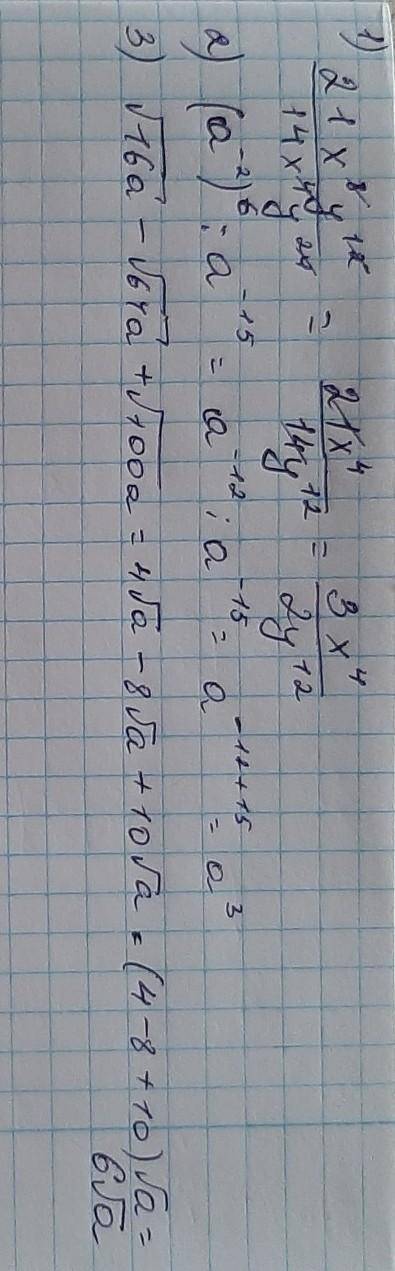 1) 21x⁸y¹²/14x⁴y²⁴ = 21x⁴/14y¹² = 3x⁴/2y¹²
2) (a⁻²)⁶ : a⁻¹⁵ = a⁻¹² : a⁻¹⁵ = a⁻¹²⁺¹⁵ = a³
3) √16a - √64a + √100a = 4√a - 8√a + 10√a = (4-8+10)√a =
6√a